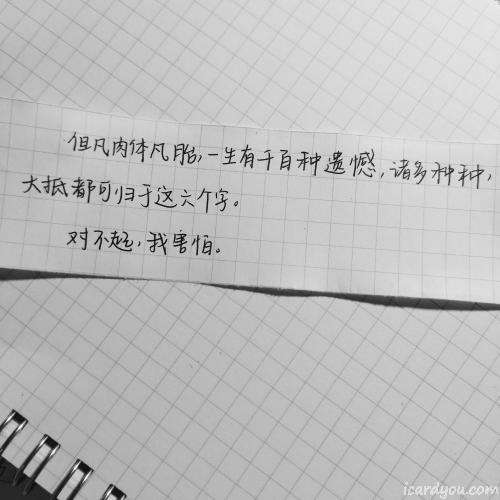 但凡肉体凡胎,一生有千百种遗憾,诸多种种,
大抵都可归于这六个字。
对不起,我害怕。
icardyou.com